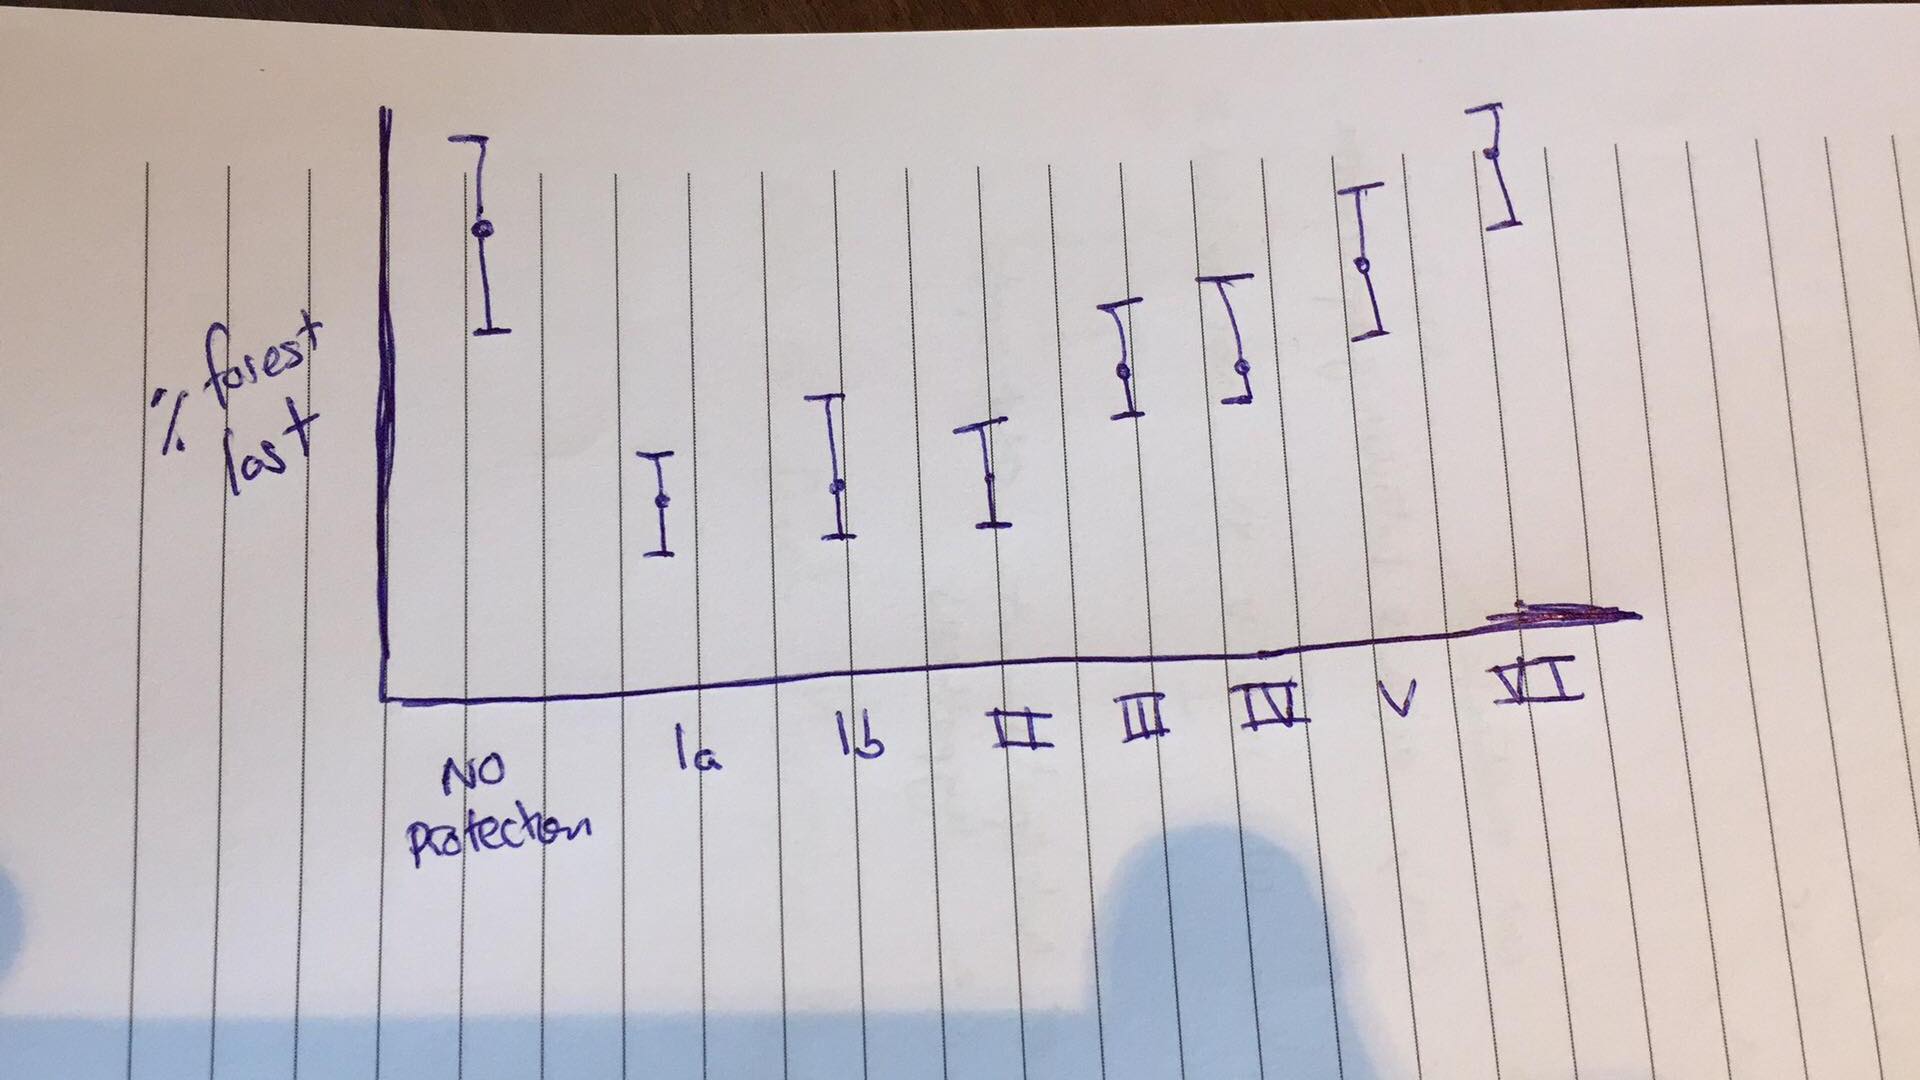 % forest
lost
NO
Protection
Ia
Ib
II
III
IV
V
VI